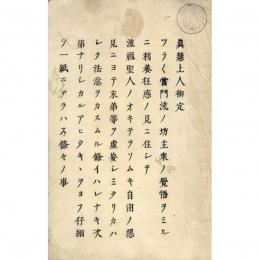 真慧上人御定
ツラ〱當門流ノ坊主衆ノ覺悟ヲミル
ニ利養狂惑ノ見ニ住シテ
流祖聖人ノオキテヲソムキ自由ノ惡
見ニヨテ末弟等ヲ虚妄シミタリカハ
シク法意ヲカスムル條イハレナキ次
第ナリシカルアヒタキヽヲヨフ仔細
ヲ一紙ニアラハス條々ノ事